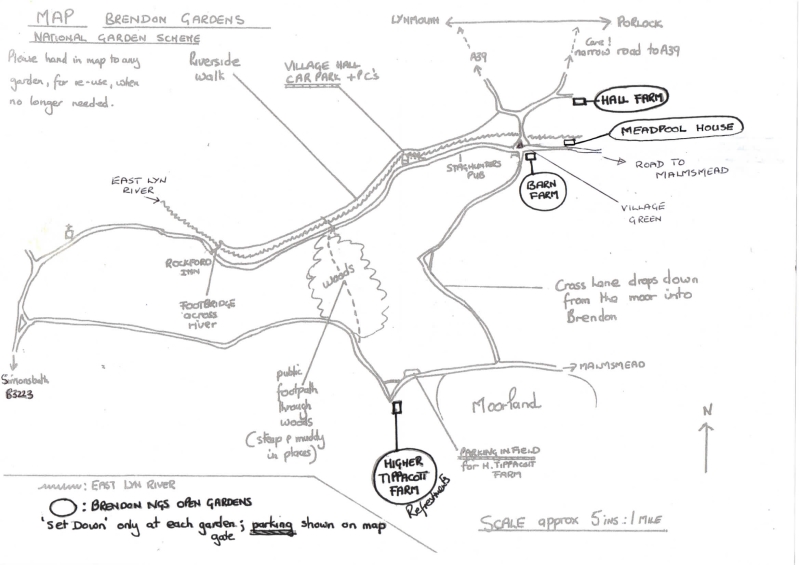 MAP BRENDON GARDENS
NATIONAL GARDEN SCHEME
Please hand in map to any
garden, for re-use, when
no longer needed.
Riverside
walk
VILLAGE HALL
CAR PARK + PC's
LYNMOUTH
PORLOCK
A39
Care!
narrow road to A39
HALL FARM
MEADPOOL HOUSE
ROAD TO
MALMSMEAD
STAGHUNTERS
PUB
BARN
FARM
VILLAGE
GREEN
EAST LYN
RIVER
ROCKFORD
INN
FOOTBRIDGE
across
river
woods
Cross Lane drops down
from the moor into
Brendon
Simonsbath
B3223
public
footpath
through
woods
(steep & muddy
in places)
MALMSMEAD
Moorland
N
PARKING IN FIELD
for H. TIPPACOTT
FARM
HIGHER
TIPPACOTT
FARM
Refreshments
: EAST LYN RIVER
: BRENDON NGS OPEN GARDENS
'Set Down' only at each garden; parking shown on map
gate
SCALE approx 5 INS : 1 MILE